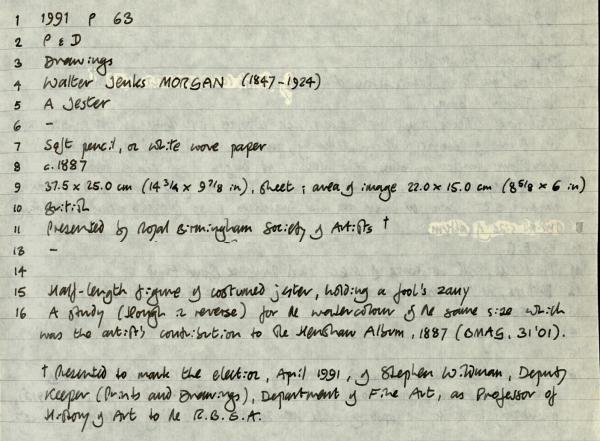 1 1991 P 63
2 P & D
3 Drawings
4 Walter Jenks MORGAN (1847-1924)
5 A Jester
6 -
7 Soft pencil, on white wove paper
8 c.1887
9 37.5 x 25.0 cm (14 3/4 x 9 7/8 in), sheet; area of image 22.0 x 15.0 cm (8 5/8 x 6 in)
10 British
11 Presented by Royal Birmingham Society of Artists †
13 -
14
15 Half-length figure of costumed jester, holding a fool's zany
16 A study (though in reverse) for the watercolour of the same size which
was the artist's contribution to the Henshaw Album, 1887 (BMAG, 31'01).
† Presented to mark the election, April 1991, of Stephen Wildman, Deputy
Keeper (Prints and Drawings), Department of Fine Art, as Professor of
History of Art to the R.B.S.A.